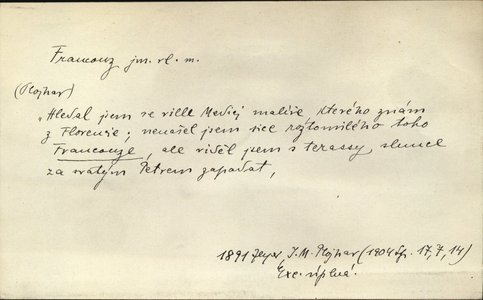 Francouz jm. vl. m.
(Plojhar)
„Hledal jsem ve ville Medicj malíře, kterého znám
z Florencie; nenašel jsem sice roztomilého toho
Francouze, ale viděl jsem s terassy slunce
za svatým Petrem zapadat,
1891 Zeyer, J. M. Plojhar (1904 Sp. 17, 7, 14)
Exc. úplná.